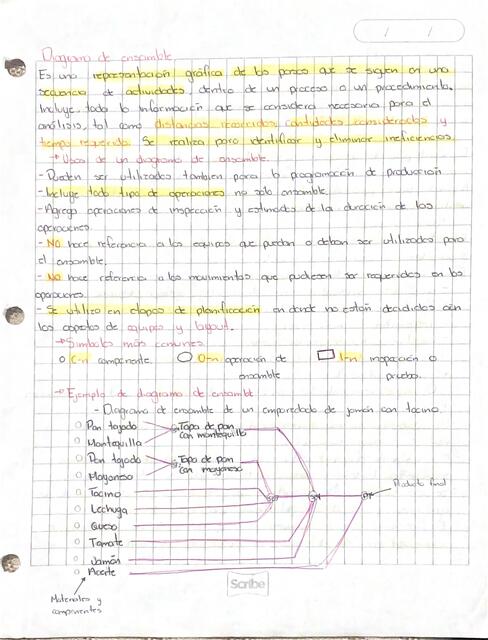 Diagrama de ensamble
Es una representación gráfica de los pasos que se siguen en una
secuencia de actividades, dentro de un proceso o un procedimiento.
Incluye toda la información que se considera necesaria para el
análisis, tal como distancias recorridas, cantidades consideradas y
tiempo requerido. Se realiza para identificar y eliminar ineficiencias.
→ Usos de un diagrama de ensamble.
- Pueden ser utilizados también para la programación de producción
- Incluye todo tipo de operaciones no solo ensamble.
- Agrega operaciones de inspección y estimados de la duración de las
operaciones
- NO hace referencia a los equipos que puedan o deban ser utilizados para
el ensamble.
- NO hace referencia a los movimientos que pudiesen ser requeridos en las
operaciones
- Se utiliza en etapas de planificación en donde no están decididos aún
los aspectos de equipos y layout.
→ Símbolos más comunes
C-n componente. O-n operación de ensamble I-n inspección o prueba.
→ Ejemplo de diagrama de ensamble
- Diagrama de ensamble de un emparedado de jamón con tocino.
Pan tajado
Tapa de pan
con mantequilla
Mantequilla
Pan tajado
Tapa de pan
con mayonesa
Mayonesa
Tocino
Producto final
Lechuga
Queso
Tomate
Jamón
Aceite
Materiales y
componentes
Scribe